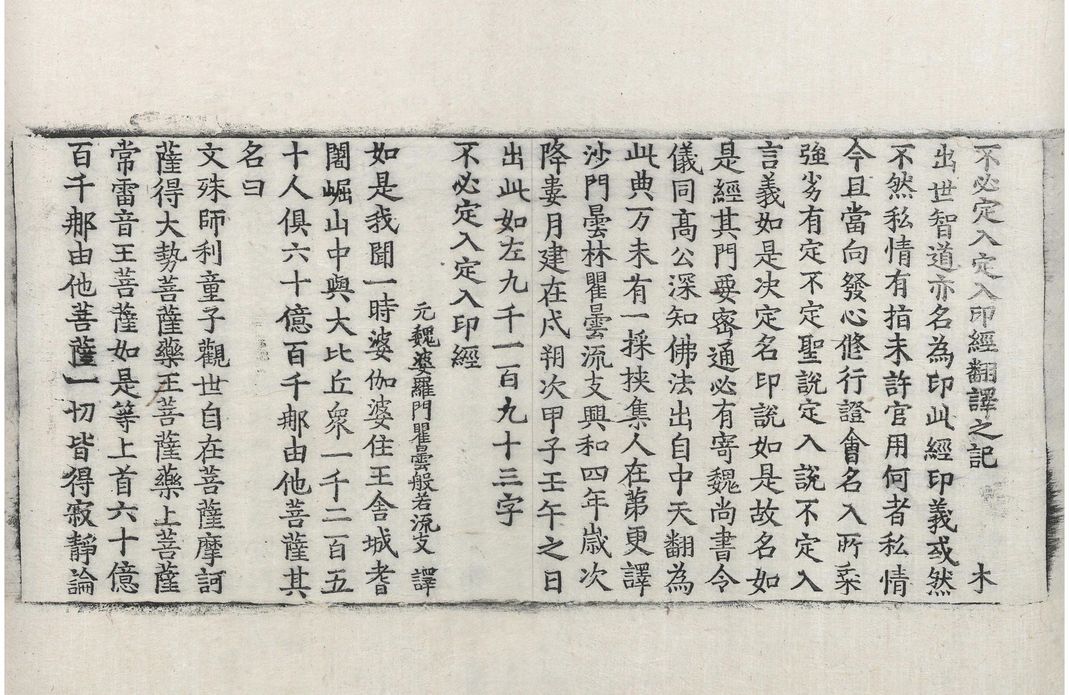 不必定入定入印經翻譯之記 木
出世智道亦名為印此經印義或然
不然私情有指未許官用何者私情
今且當向發心修行證會名入所乘
強劣有定不定聖說定入說不定入
言義如是决定名印說如是故名如
是經其門要密通必有寄魏尚書令
儀同高公深知佛法出自中天翻為
此典万未有一採挾集人在第更譯
沙門曇林瞿曇流支興和四年歲次
降婁月建在戍朔次甲子壬午之日
出此如左九千一百九十三字
不必定入定入印經
元魏婆羅門瞿曇般若流支 譯
如是我聞一時婆伽婆住王舍城耆
闍崛山中與大比丘眾一千二百五
十人俱六十億百千那由他菩薩其
名曰
文殊師利童子觀世自在菩薩摩訶
薩得大勢菩薩藥王菩薩藥上菩薩
常雷音王菩薩如是等上首六十億
百千那由他菩薩一切皆得寂靜論